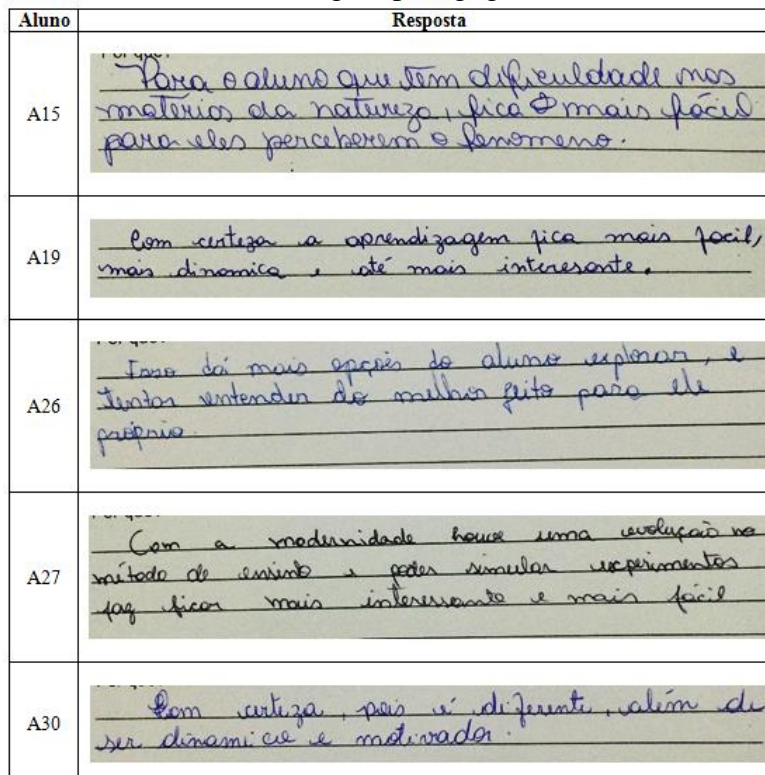 Aluno Resposta
A15
Para o aluno que tem dificuldade nos
matérios da natureza, fica mais fácil
para eles perceberem o fenomeno.
A19
Com certeza a aprendizagem fica mais facil,
mais dinamica e até mais interesante.
A26
Isso dá mais opções do aluno explorar, e
tentar entender do melhor jeito para ele
próprio.
A27
Com a modernidade houve uma evolução no
método de ensino e poder simular experimentos
faz ficar mais interessante e mais fácil
A30
Com certeza, pois é diferente, além de
ser dinamico e motivador.